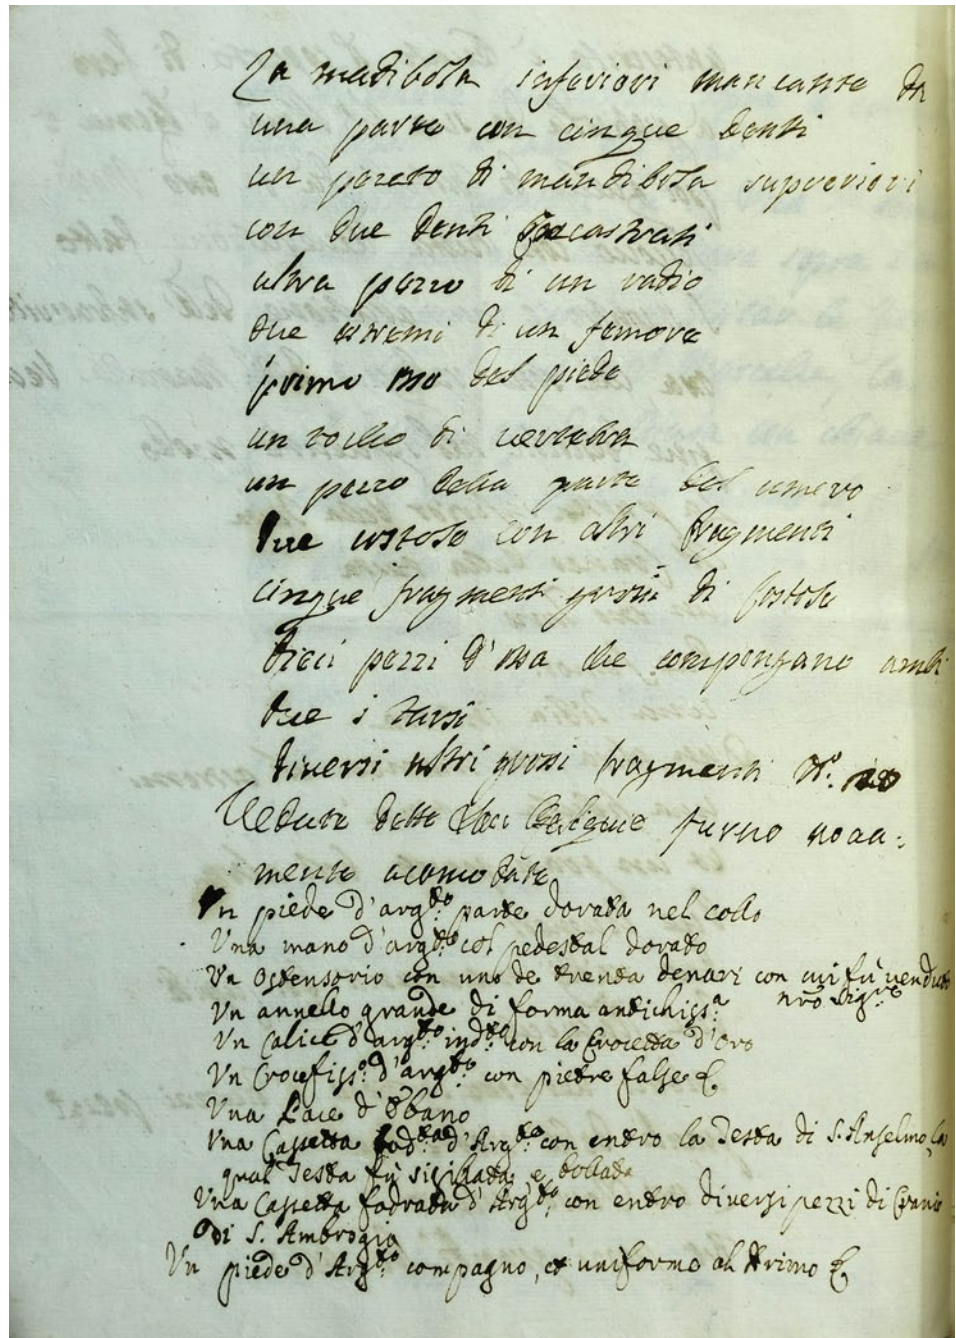 La madibola inferiori mancante da
una parte con cinque denti
un pezeto di mandibola superiori
con due denti incastrati
altra pezzo di un radio
due estremi di un femore
primo osso del piede
un rocho di vertebra
un pezzo della parte del umero
due costole con altri fragmenti
cinque fragmenti grossi di costole
dieci pezzi d'ossa che compongano ambi
due i tarsi
diversi altri grossi fragmenti N.º
Vedute dette Reliquie furno noua=
mente acomodate
Un piede d'arg.to parte dorata nel collo
Una mano d'arg.to col pedestal dorato
Un ostensorio con uno de trenta denari con cui fù venduto
nro Sig.re
Un annello grande di forma antichiss.a
Un Calice d'arg.to ind.to con la Crocetta d'oro
Un Crocefiss.o d'arg.to con pietre false &
Una Pace d'Ebano
Una Cassetta fod.ta d'Arg.to con entro la Testa di S. Anselmo, la
qual Testa fù sigillata, e bollata
Una Cassetta fodrata d'Arg.to con entro diversi pezzi di Cranio
di S. Ambrogio
Un piede d'Arg.to compagno, et uniforme al Primo &